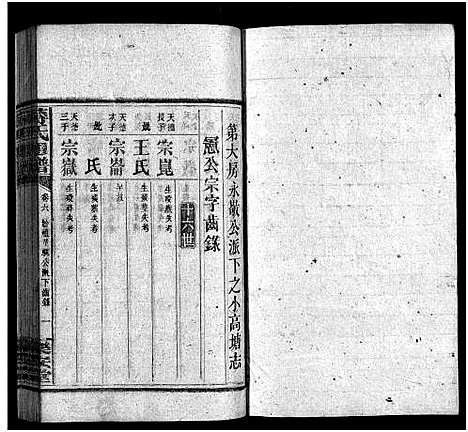 第大房永敬公派下之小高塘志
憲公宗字齒錄
十六世
天德長子 宗崑 生歿葬失考
王氏 生歿葬失考
天德次子 宗崙
氏 生歿葬失考
天德三子 宗嶽 生歿葬失考
卷六 公派下齒錄 一